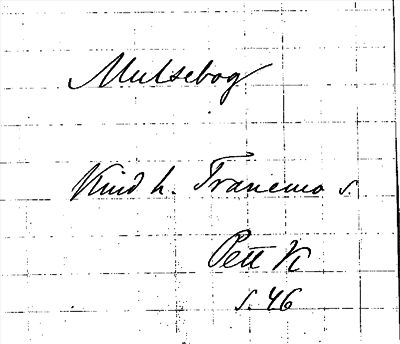 Mulsebog
Kind h. Francemo s
Pett K
s. 46